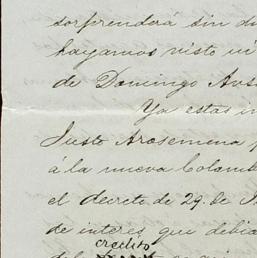 sorprenderá sin du
hayamos visto un
de Domingo
Ya estas in
Justo Arosemena p
á la nueva Colomb
el decreto de 29. de
de interés que debia
credito